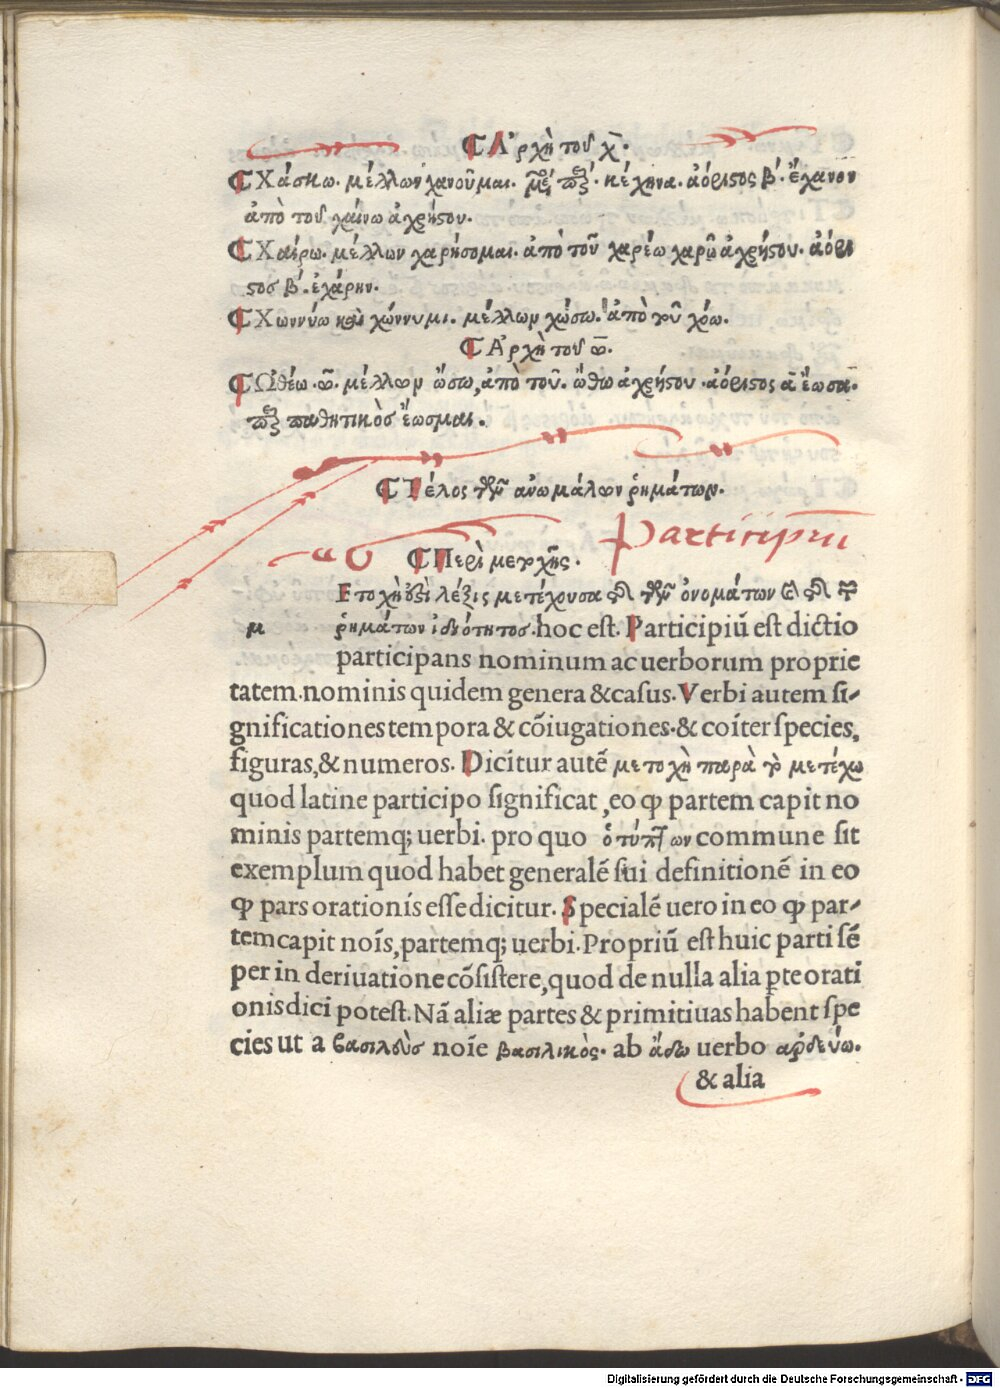 ¶ Ἀρχὴ τοῦ χ̄.
¶ Χάσκω. μέλλων χανοῦμαι. κέχηνα. ἀόριστος β´. ἔχανον
ἀπὸ τοῦ χαίνω ἀχρήστου.
¶ Χαίρω. μέλλων χαρήσομαι. ἀπὸ τοῦ χαρέω χαρῶ ἀχρήστου. ἀόρι
στος β´. ἐχάρην.
¶ Χωννύω καὶ χώννυμι. μέλλων χώσω. ἀπὸ τοῦ χόω.
¶ Ἀρχὴ τοῦ ω̄.
¶ Ὠθέω ῶ. μέλλων ὤσω, ἀπὸ τοῦ. ὤθω ἀχρήστου. ἀόριστος ᾱ ἔωσα.
παθητικὸς ἔωσμαι.
¶ Τέλος τῶν ἀνωμάλων ῥημάτων.
Participiū
¶ Περὶ μετοχῆς.
Ετοχὴ ἐστὶ λέξις μετέχουσα τῆς τῶν ὀνομάτων καὶ τῆς τῶν
μ ῥημάτων ἰδιότητος. hoc est. Participiū est dictio
participans nominum ac uerborum proprie
tatem. nominis quidem genera & casus. Verbi autem si-
gnificationes tempora & cōiugationes. & coīter species,
figuras, & numeros. Dicitur autē μετοχὴ παρὰ τὸ μετέχω
quod latine participo significat, eo ꝙ partem capit no
minis partemq; uerbi. pro quo ὁ τύπτων commune sit
exemplum quod habet generalē sui definitionē in eo
ꝙ pars orationis esse dicitur. Specialē uero in eo ꝙ par-
tem capit noīs, partemq; uerbi. Propriū est huic parti sē
per in deriuatione cōsistere, quod de nulla alia ꝑte orati
onis dici potest. Nā aliæ partes & primitiuas habent spe
cies ut a βασιλεὺς noīe βασιλικὸς. ab ἄδω uerbo ἀρδεύω.
& alia
Digitalisierung gefördert durch die Deutsche Forschungsgemeinschaft - DFG